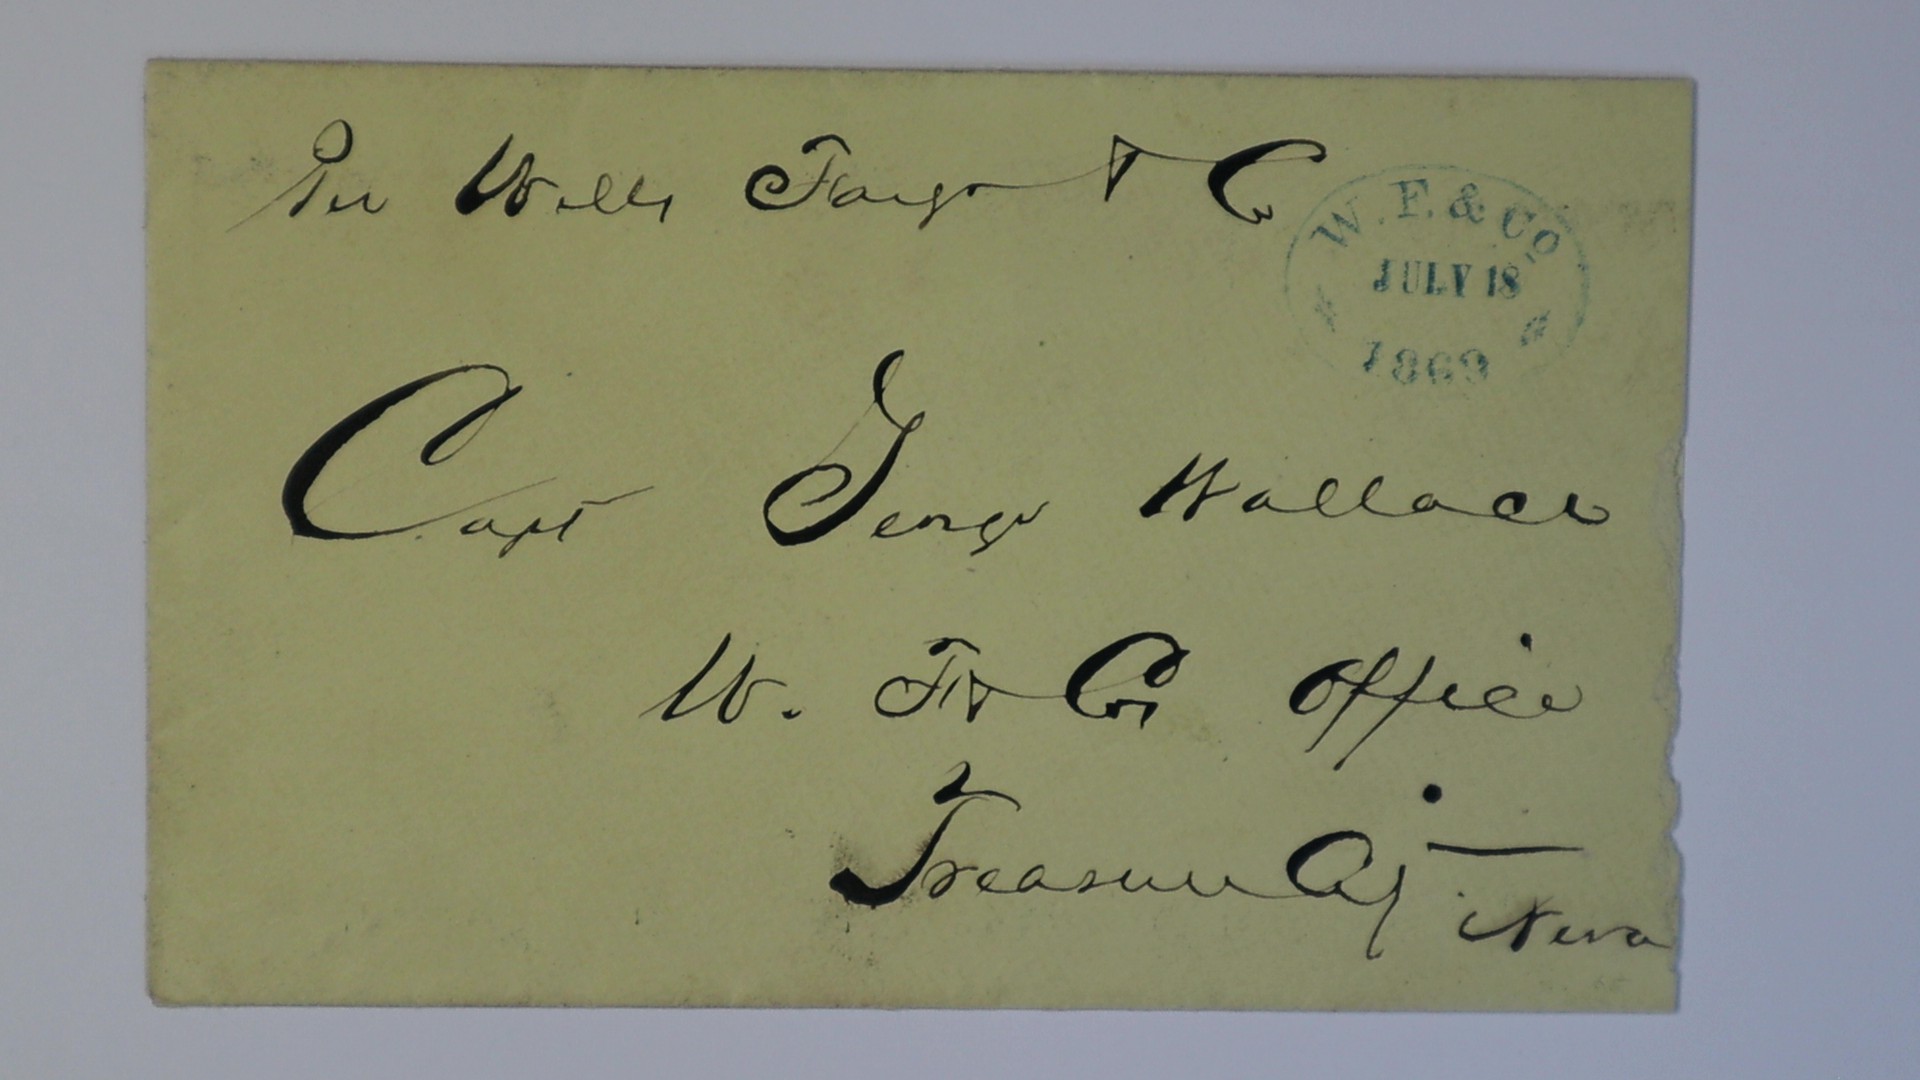 Per Wells Fargo & Co
W. F. & Co.
JULY 18
1869
Capt George Wallace
W. F & Cos Office
Treasure City
Neva